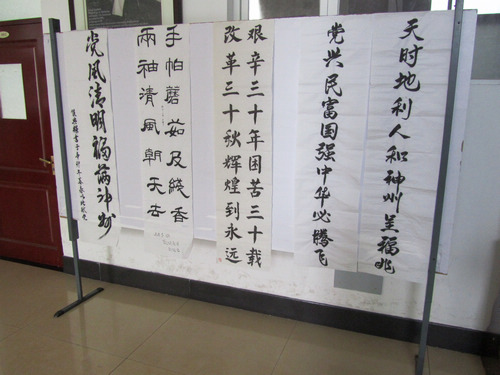 天时地利人和神州呈福兆
党兴民富国强中华必腾飞
艰辛三十年困苦三十载
改革三十秋辉煌到永远
手怕蘑茹及綫香
兩袖清風朝天去
党风清明福荫神州